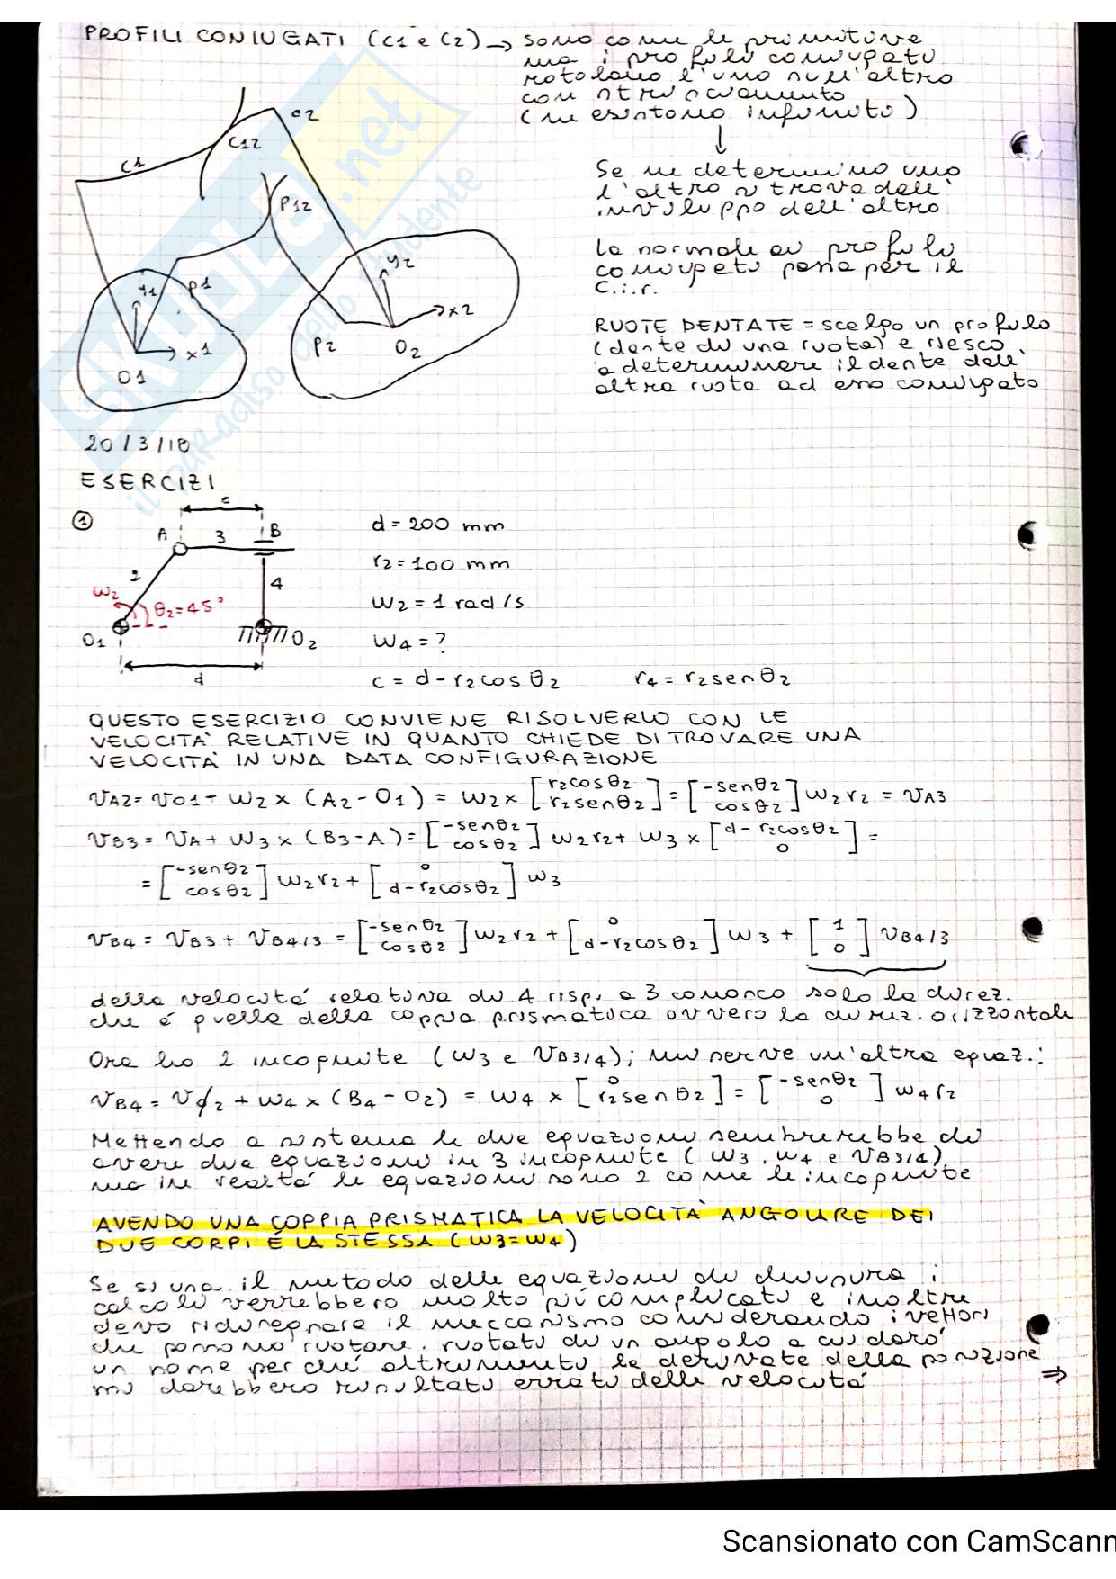 PROFILI CONIUGATI (C1 e C2) → sono come le primitive
ma i profili coniugati
rotolano l'uno sull'altro
con strisciamento
(ne esistono infiniti)
Se ne determino uno
l'altro si trova dall'
inviluppo dell'altro
La normale ai profili
coniugati passa per il
C.i.r.
RUOTE DENTATE = scelgo un profilo
(dente di una ruota) e riesco
a determinare il dente dell'
altra ruota ad esso coniugato
C1
C2
C12
P12
P1
y1
x1
O1
y2
x2
P2
O2
20/3/18
ESERCIZI
①
c
A
3
B
2
4
ω2
θ2=45°
O1
O2
d
d = 200 mm
r2 = 100 mm
ω2 = 1 rad/s
ω4 = ?
c = d - r2 cos θ2 r4 = r2 sen θ2
QUESTO ESERCIZIO CONVIENE RISOLVERLO CON LE
VELOCITÀ RELATIVE IN QUANTO CHIEDE DI TROVARE UNA
VELOCITÀ IN UNA DATA CONFIGURAZIONE
vA2 = vO1 + ω2 × (A2 - O1) = ω2 × [r2cosθ2 r2senθ2] = [-senθ2 cosθ2] ω2 r2 = vA3
vB3 = vA + ω3 × (B3 - A) = [-senθ2 cosθ2] ω2r2 + ω3 × [d - r2cosθ2 0] =
= [-senθ2 cosθ2] ω2 r2 + [0 d - r2cosθ2] ω3
vB4 = vB3 + vB4/3 = [-senθ2 cosθ2] ω2 r2 + [0 d - r2cosθ2] ω3 + [1 0] vB4/3
della velocità relativa di 4 risp. a 3 conosco solo la direz.
che è quella della coppia prismatica ovvero la direz. orizzontale
Ora ho 2 incognite (ω3 e vB3/4); mi serve un'altra equaz.:
vB4 = vO2 + ω4 × (B4 - O2) = ω4 × [0 r2senθ2] = [-senθ2 0] ω4 r2
Mettendo a sistema le due equazioni sembrerebbe di
avere due equazioni in 3 incognite (ω3, ω4 e vB3/4)
ma in realtà le equazioni sono 2 come le incognite
AVENDO UNA COPPIA PRISMATICA LA VELOCITÀ ANGOLARE DEI
DUE CORPI È LA STESSA (ω3=ω4)
Se si usa il metodo delle equazioni di chiusura i
calcoli verrebbero molto più complicati e inoltre
devo ridisegnare il meccanismo considerando i vettori
che possono ruotare, ruotati di un angolo a cui darò
un nome perché altrimenti le derivate della posizione
mi darebbero risultati errati delle velocità
⇒
SKUOLA.net
il paradiso dello studente
Scansionato con CamScann